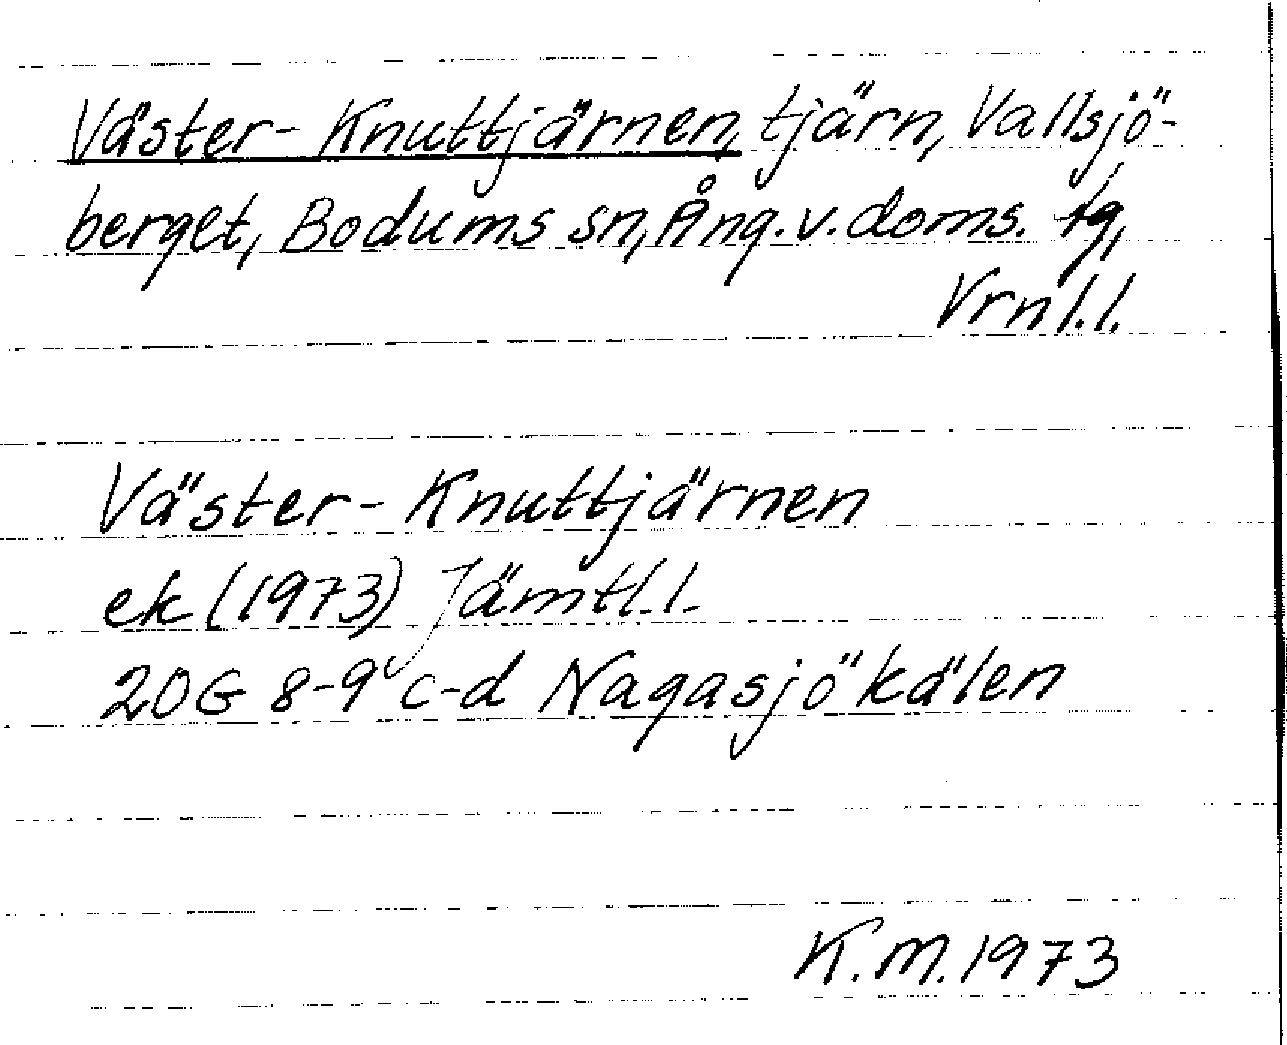 Väster-Knuttjärnen, tjärn, Vallsjö-
berget, Bodums sn, Ång. v. doms. tg,
Vrnl.l.
Väster-Knuttjärnen
ek (1973) Jämtl.l.
20G 8-9 c-d Nagasjökälen
K.M. 1973